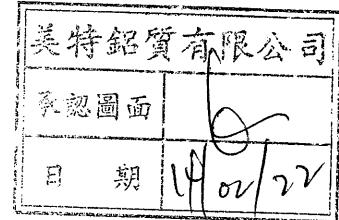 美特鋁質有限公司
承認圖面
日 期 14/02/22